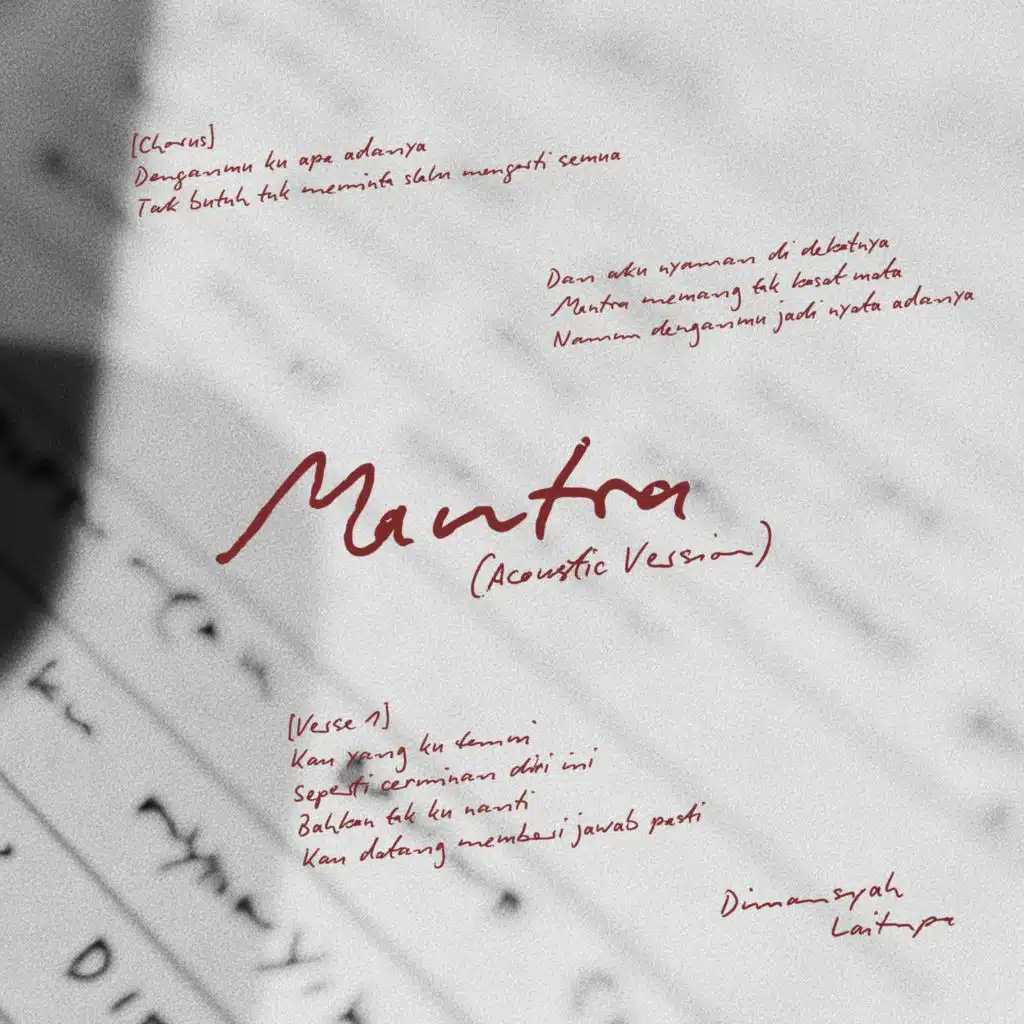 [Chorus]
Denganmu ku apa adanya
Tak butuh tuk meminta slalu mengerti semua
Dan aku nyaman di dekatnya
Mantra memang tak kasat mata
Namun denganmu jadi nyata adanya
Mantra
(Acoustic Version)
[Verse 1]
Kau yang ku temui
Seperti cerminan diri ini
Bahkan tak ku nanti
Kau datang memberi jawab pasti
Dimansyah
Laitupa